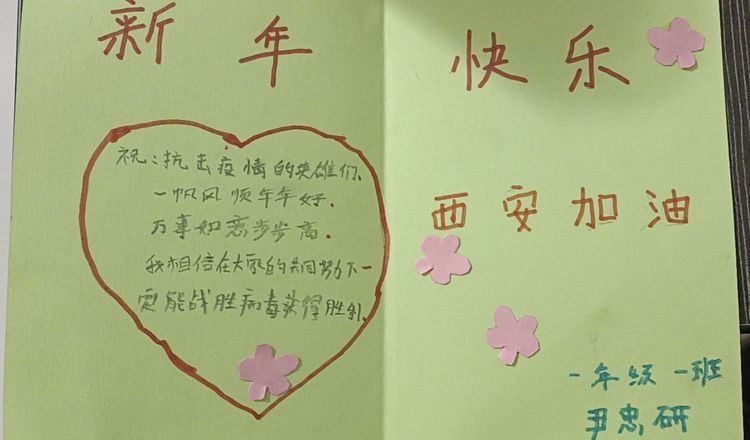 新年快乐
祝:抗击疫情的英雄们、
一帆风顺年年好.
万事如意步步高.
我相信在大家的共同努力下一
定能战胜病毒获得胜利.
西安加油
一年级一班
尹忠研